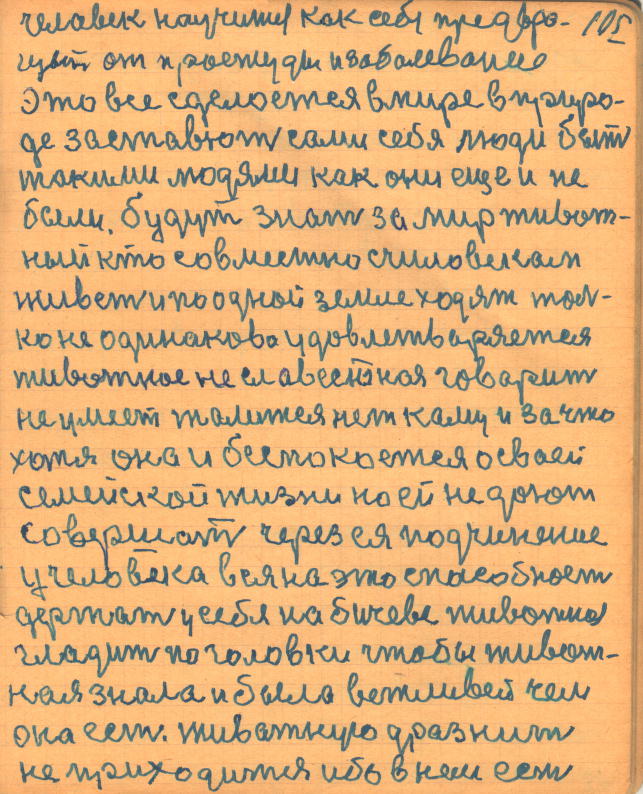 человек научится как себя предвро- 105
гцат от простуды и заболевание
Это все сделоется в мире в приро-
де заставют сами себя люди быт
такими людями как они еще и не
были. будут знат за мир живот-
ный кто совместно счиловекам
живет и по одной земле ходят тол-
ко не одинаково удовлетваряется
животное не славестная говарит
не умеет жалится нет каму и за что
хотя она и беспокоется о своей
семейской жизни но ей не доют
совершат через ся подчинение
у человека вся на это способност
держат у себя на бичеве животно
гладит по головки чтобы живот-
ная знала и была вежливей чем
она ест. животную дразнит
не приходится ибо в нем ест